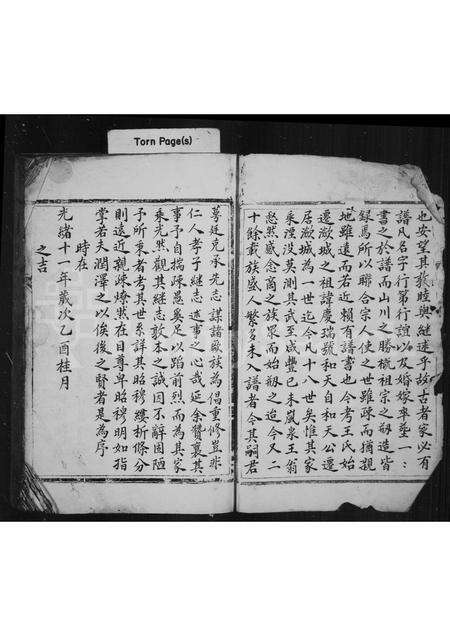 Torn Page(s)
也安望其敦睦與繼述乎故古者家必有
譜凡名字行第行誼以及婚嫁卒塟一一
書之於譜而山川之勝概祖宗之剏造皆
錄焉所以聯合宗人使之世雖疎而猶親
地雖遠而若近賴有譜書也今考王氏始
遷敝城之祖諱慶瑞號和天自和天公遷
居敝城為一世迄今凡十八世矣惟其家
乘湮没莫測其武至咸豐己未嵐泉王翁
慭然感念啇之族眾而始剏之迨今又二
十餘載族盛人繁多未入譜者今其嗣君
萼廷克承先志謀諸敝族為倡重修豈非
仁人孝子継志述事之心哉延余贊襄其
事予自揣疎愚奚足以蹈前烈而為其家
乘光然觀其継志敦本之誠因不辭固陋
予所秉者考其世系詳其昭穆縷析條分
則遠近親疎燎然在目尊卑昭穆明如指
掌若夫潤澤之以俟後之賢者是為序
時在
光緒十一年歲次乙酉桂月
之吉